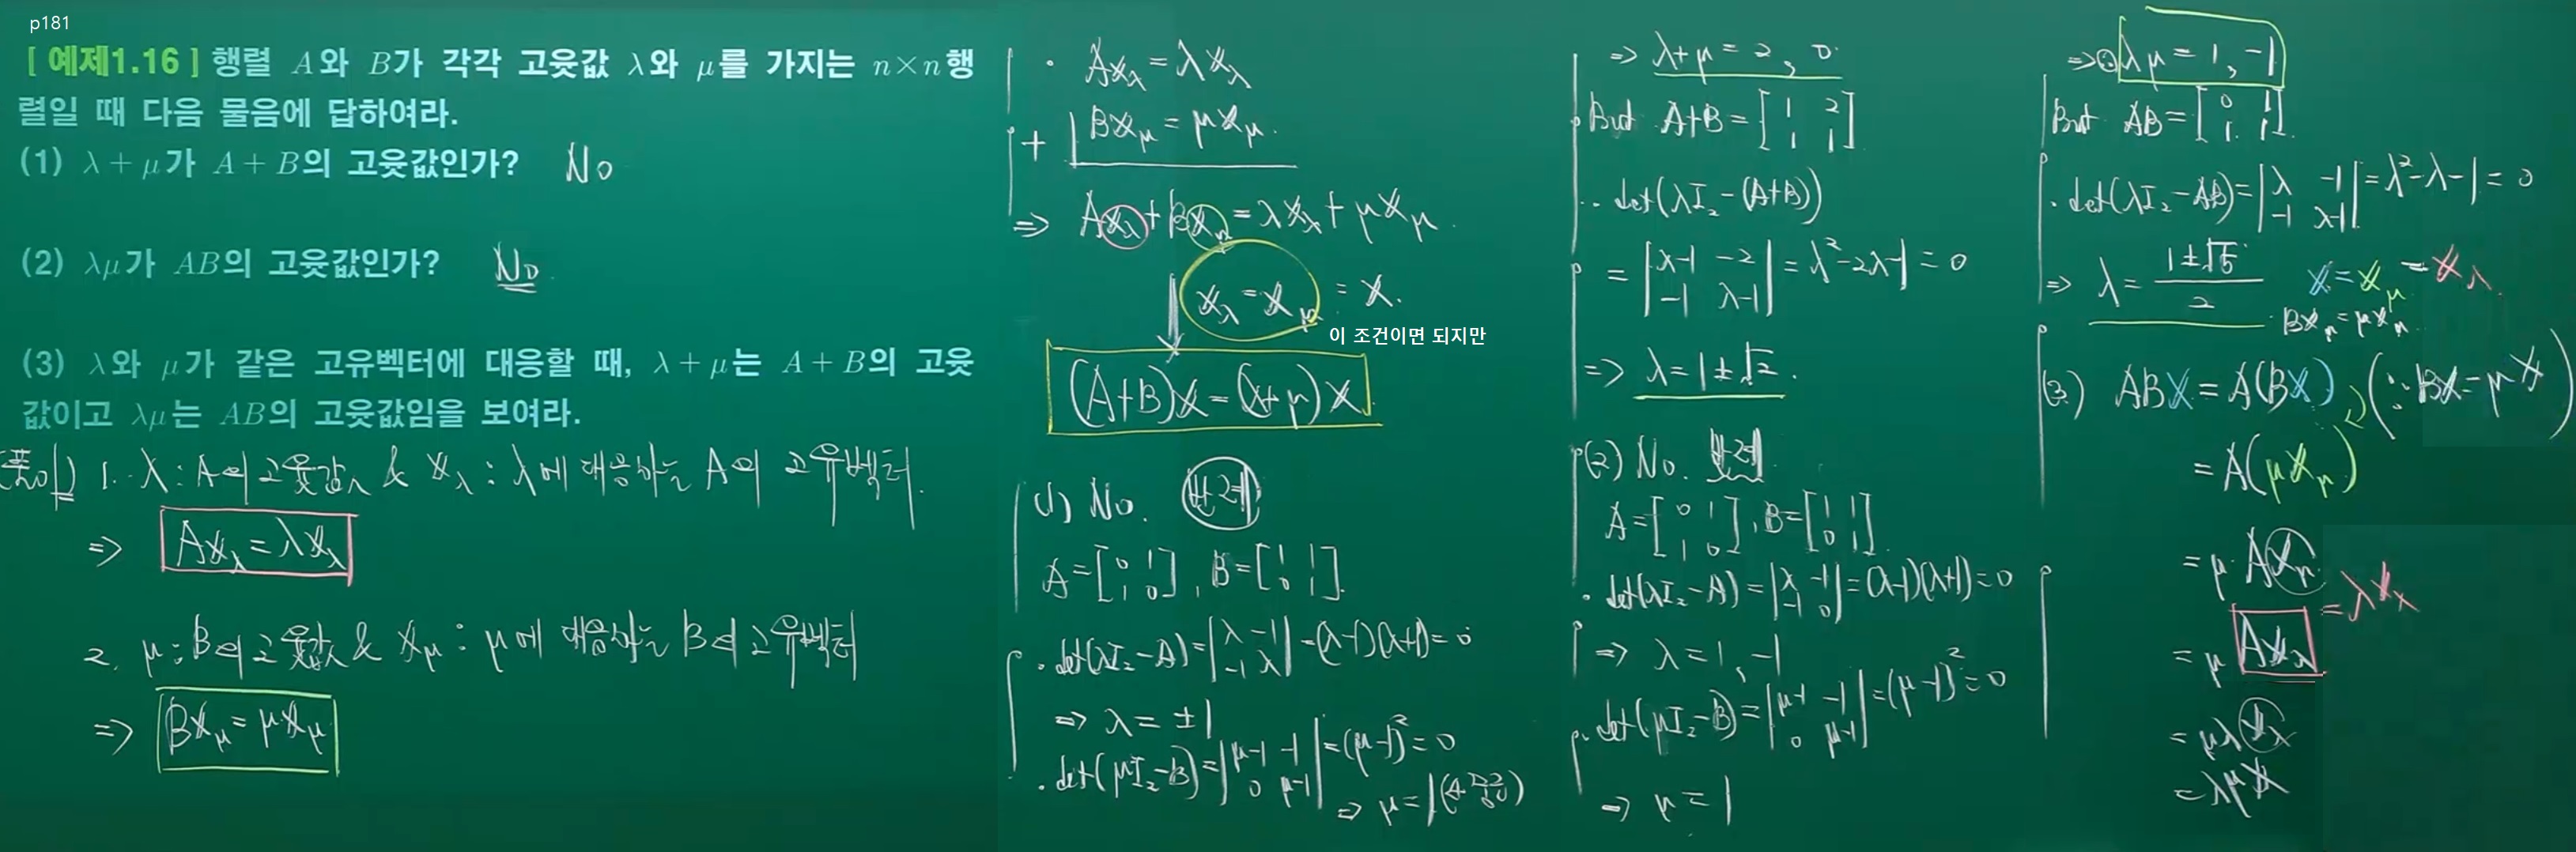 p181
[ 예제1.16 ] 행렬 A와 B가 각각 고윳값 λ와 μ를 가지는 n×n행
렬일 때 다음 물음에 답하여라.
(1) λ + μ가 A + B의 고윳값인가? No
(2) λμ가 AB의 고윳값인가? No.
(3) λ와 μ가 같은 고유벡터에 대응할 때, λ + μ는 A + B의 고윳
값이고 λμ는 AB의 고윳값임을 보여라.
(풀이) 1. λ : A의 고윳값 & x_λ : λ에 대응하는 A의 고유벡터.
=> Ax_λ = λx_λ
2. μ : B의 고윳값 & x_μ : μ에 대응하는 B의 고유벡터
=> Bx_μ = μx_μ
· Ax_λ = λx_λ
+ Bx_μ = μx_μ.
=> Ax_λ + Bx_μ = λx_λ + μx_μ.
x_λ = x_μ = x.
이 조건이면 되지만
(A+B)x = (λ+μ)x
(1) No.
A = [0 1; 1 0], B = [1 1; 0 1].
· det(λI₂-A) = |λ -1; -1 λ| = (λ-1)(λ+1) = 0
=> λ = ±1
· det(μI₂-B) = |μ-1 -1; 0 μ-1| = (μ-1)² = 0
=> μ = 1 (중근)
=> λ+μ = 2, 0.
But A+B = [1 2; 1 1]
· det(λI₂-(A+B))
= |λ-1 -2; -1 λ-1| = λ²-2λ-1 = 0
=> λ = 1±√2.
(2) No.
A = [0 1; 1 0], B = [1 1; 0 1].
· det(λI₂-A) = |λ -1; -1 0| = (λ-1)(λ+1) = 0
=> λ = 1, -1
· det(μI₂-B) = |μ-1 -1; 0 μ-1| = (μ-1)² = 0
=> μ = 1
=> λμ = 1, -1
But AB = [0 1; 1 1].
· det(λI₂-AB) = |λ -1; -1 λ-1| = λ²-λ-1 = 0
=> λ = (1±√5)/2
x = x_μ = x_λ
Bx_μ = μx_μ
(3) ABx = A(Bx) (∵ Bx = μx)
= A(μx_μ)
= μ·Ax_μ
= μ Ax_λ = λx_λ
= μλx_λ
= λμx